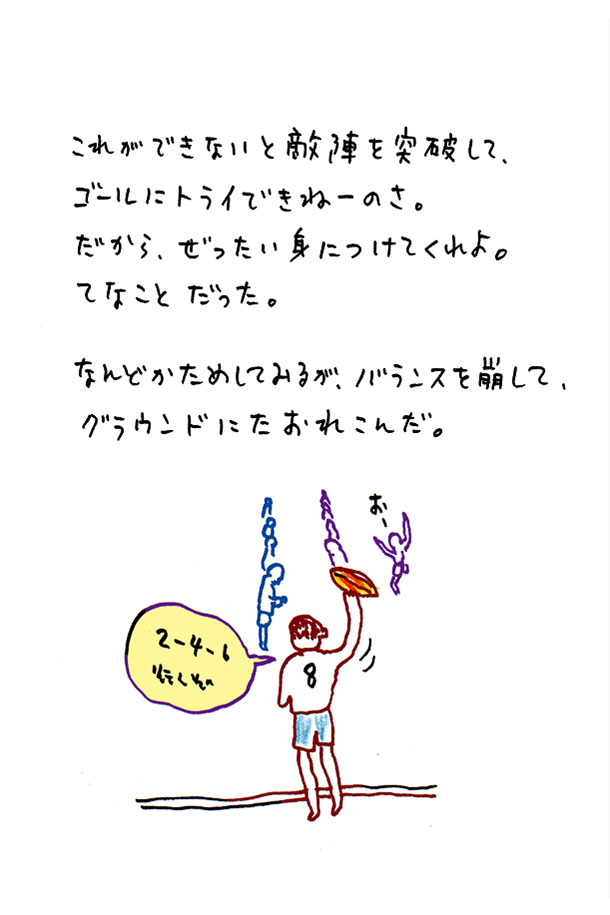 これができないと敵陣を突破して、
ゴールにトライできねーのさ。
だから、ぜったい身につけてくれよ。
てなことだった。
なんどかためしてみるが、バランスを崩して、
グラウンドにたおれこんだ。
おー
2-4-6
行くぞ
8